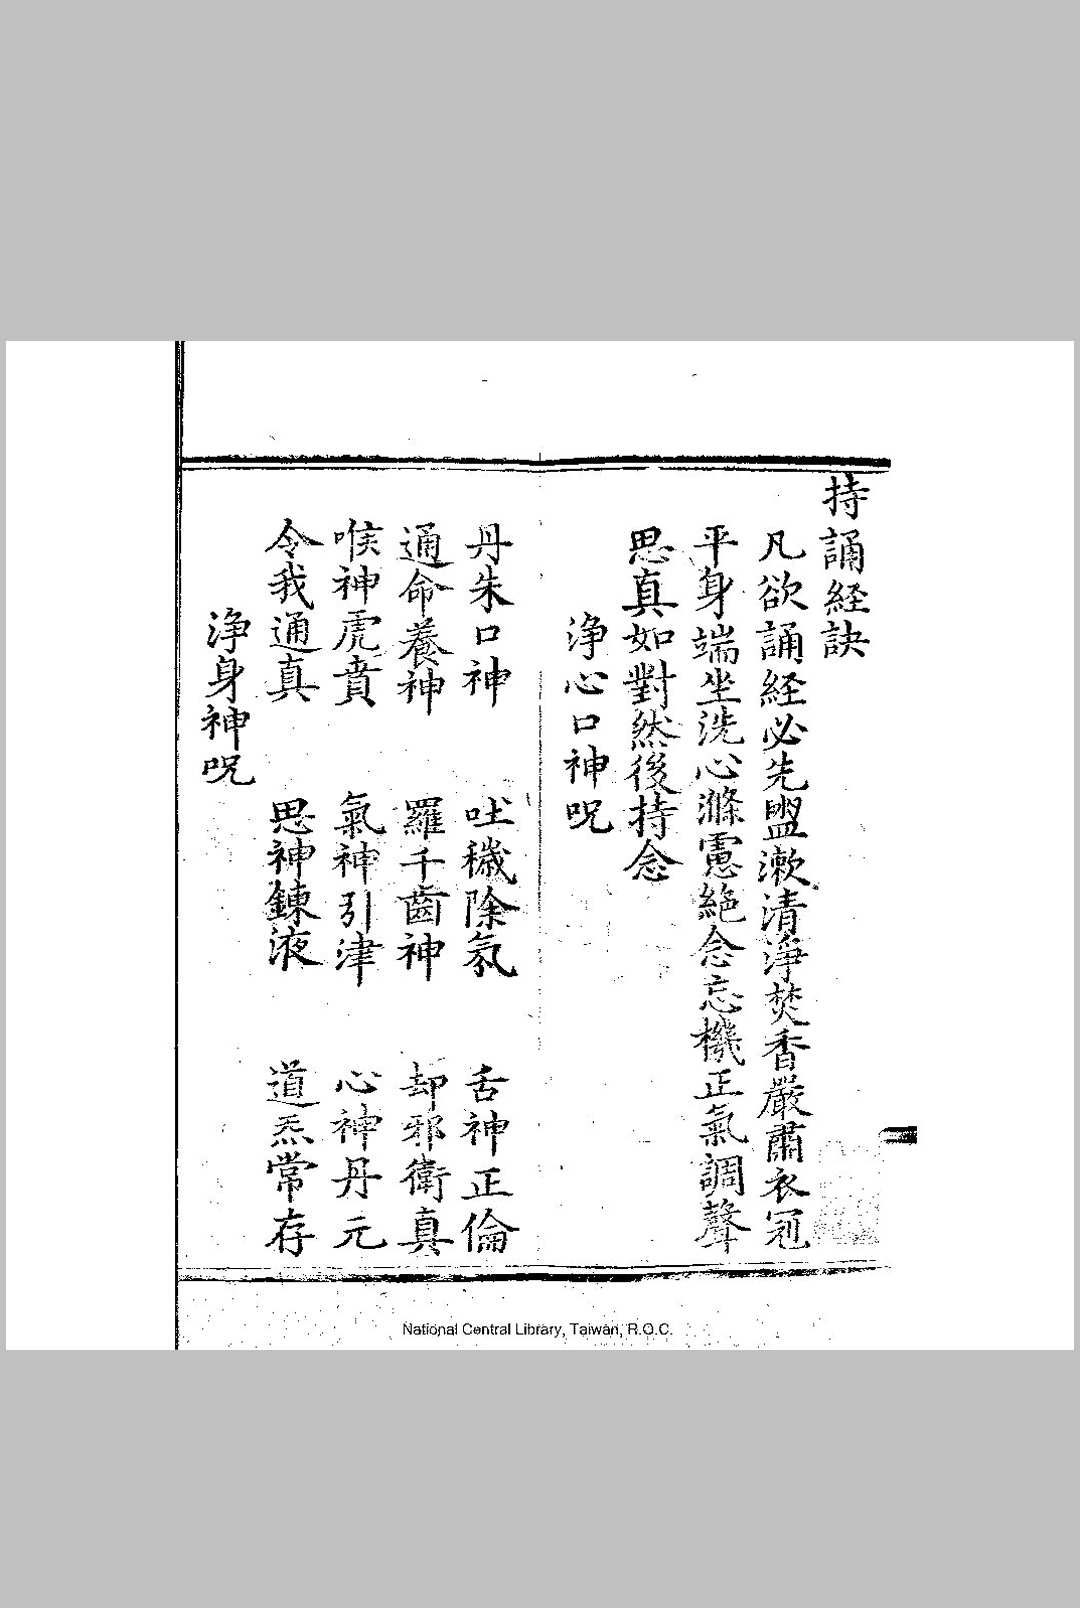 持誦経訣
凡欲誦経必先盥漱清淨焚香嚴肅衣冠
平身端坐洗心滌慮絶念忘機正氣調聲
思真如對然後持念
淨心口神呪
丹朱口神 吐穢除氛 舌神正倫
通命養神 羅千齒神 却邪衛真
喉神虎賁 氣神引津 心神丹元
令我通真 思神錬液 道炁常存
淨身神呪
National Central Library, Taiwan, R.O.C.